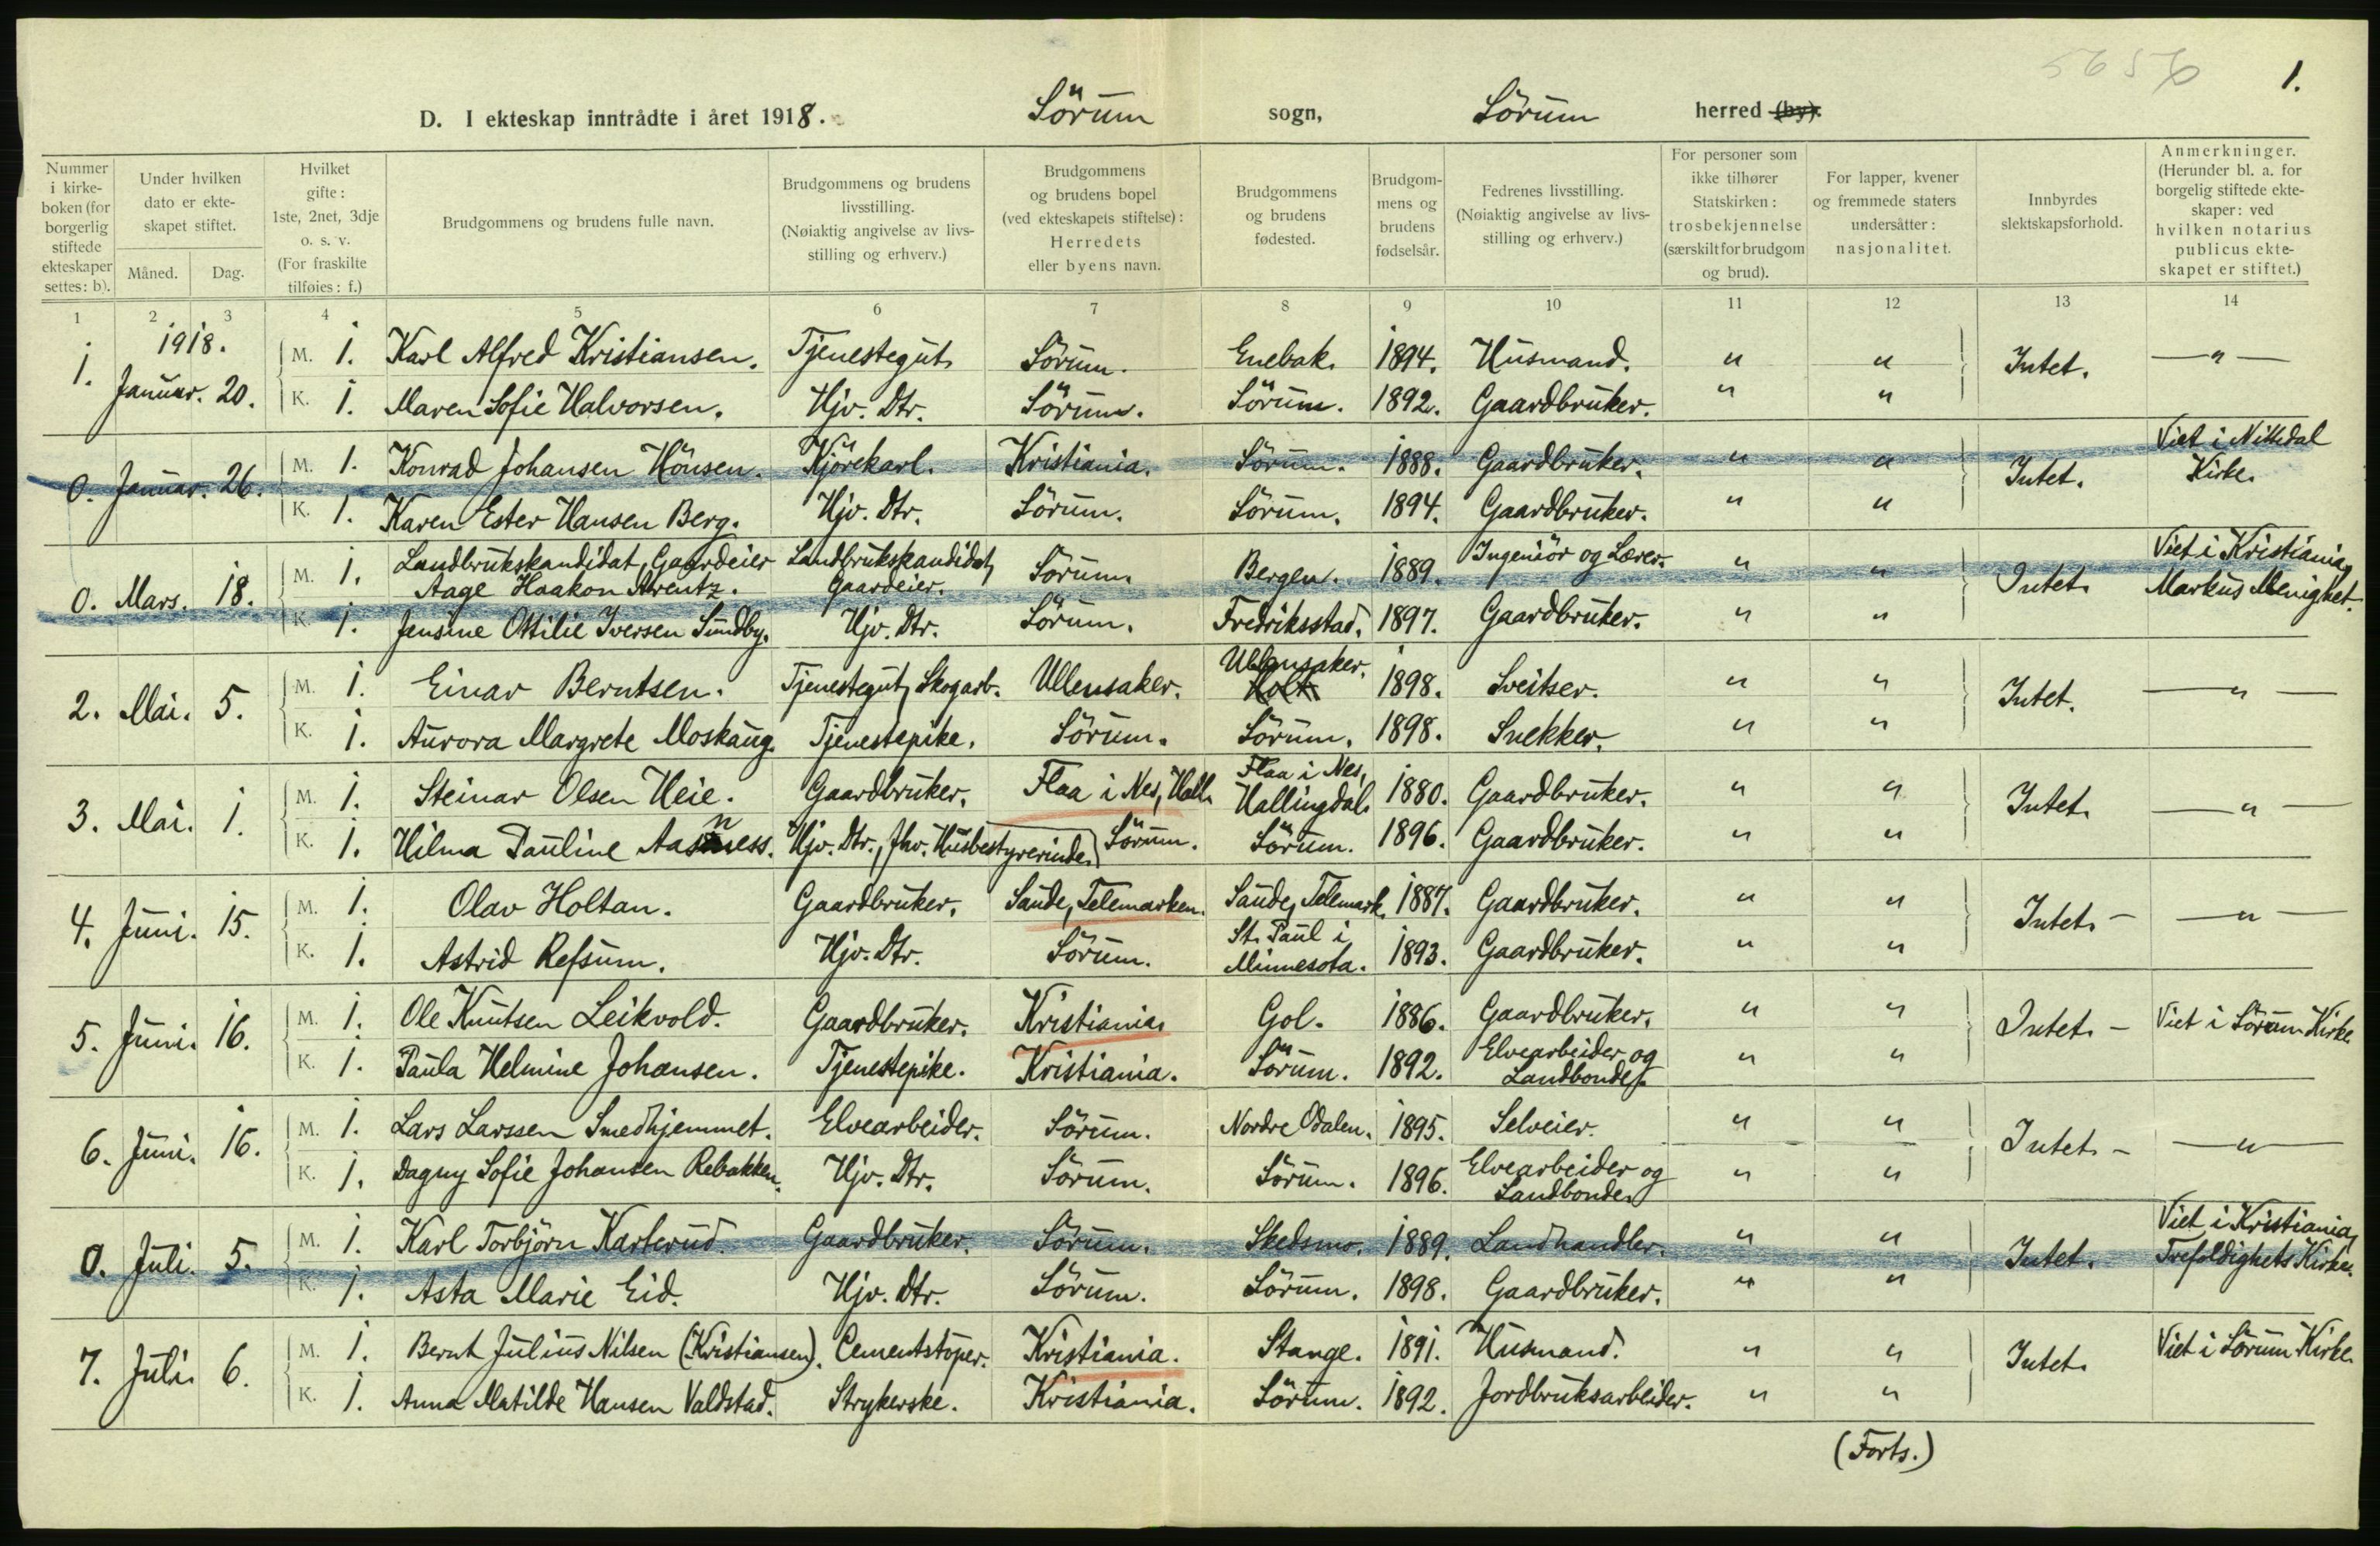 5656
1.
D. I ekteskap inntrådte i året 1918. Sörum sogn, Sörum herred (by).
Nummer i kirkeboken (for borgerlig stiftede ekteskaper settes: b). Under hvilken dato er ekteskapet stiftet. Måned. Dag. Hvilket gifte: 1ste, 2net, 3dje o. s. v. (For fraskilte tilføies: f.) Brudgommens og brudens fulle navn. Brudgommens og brudens livsstilling. (Nøiaktig angivelse av livsstilling og erhverv.) Brudgommens og brudens bopel (ved ekteskapets stiftelse): Herredets eller byens navn. Brudgommens og brudens fødested. Brudgommens og brudens fødselsår. Fedrenes livsstilling. (Nøiaktig angivelse av livsstilling og erhverv.) For personer som ikke tilhører Statskirken: trosbekjennelse (særskilt for brudgom og brud). For lapper, kvener og fremmede staters undersåtter: nasjonalitet. Innbyrdes slektskapsforhold. Anmerkninger. (Herunder bl. a. for borgerlig stiftede ekteskaper: ved hvilken notarius publicus ekteskapet er stiftet.)
1 2 3 4 5 6 7 8 9 10 11 12 13 14
1918.
1. Januar. 20. M. 1. Karl Alfred Kristiansen. Tjenestegut. Sörum. Enebak. 1894. Husmand. " " Intet. — " —
K. 1. Maren Sofie Halvorsen. Hjv. Dtr. Sörum. Sörum. 1892. Gaardbruker. " "
0. Januar. 26. M. 1. Konrad Johansen Hönsen. Kjörekarl. Kristiania. Sörum. 1888. Gaardbruker. " " Intet. Viet i Nittedal Kirke.
K. 1. Karen Ester Hansen Berg. Hjv. Dtr. Sörum. Sörum. 1894. Gaardbruker. " "
0. Mars. 18. M. 1. Landbrukskandidat, Gaardeier Aage Haakon Arentz. Landbrukskandidat, Gaardeier. Sörum. Bergen. 1889. Ingeniör og Lærer. " " Intet. Viet i Kristiania, Markus Menighet.
K. 1. Jensine Ottilie Iversen Sundby. Hjv. Dtr. Sörum. Fredriksstad. 1897. Gaardbruker. " "
2. Mai. 5. M. 1. Einar Berntsen. Tjenestegut, Skogarb. Ullensaker. Ullensaker. Holt 1898. Sveitser. " " Intet. — " —
K. 1. Aurora Margrete Moskaug. Tjenestepike. Sörum. Sörum. 1898. Snekker. " "
3. Mai. 1. M. 1. Steinar Olsen Heie. Gaardbruker. Flaa i Nes, Hall. Flaa i Nes, Hallingdal. 1880. Gaardbruker. " " Intet. — " —
K. 1. Hilma Pauline Aasness. Hjv. Dtr., fhv. Husbestyrerinde. Sörum. Sörum. 1896. Gaardbruker. " "
4. Juni. 15. M. 1. Olav Holtan. Gaardbruker. Saude, Telemarken. Saude, Telemark. 1887. Gaardbruker. " " Intet. — — " —
K. 1. Astrid Refsum. Hjv. Dtr. Sörum. St. Paul i Minnesota. 1893. Gaardbruker. " "
5. Juni. 16. M. 1. Ole Knutsen Leikvold. Gaardbruker. Kristiania. Gol. 1886. Gaardbruker. " " Intet. — Viet i Sörum Kirke
K. 1. Paula Helmine Johansen. Tjenestepike. Kristiania. Sörum. 1892. Elvearbeider og Landbonde. " "
6. Juni. 16. M. 1. Lars Larssen Smedhjemmet. Elvearbeider. Sörum. Nordre Odalen. 1895. Selveier. " " Intet. — — " —
K. 1. Dagny Sofie Johansen Rebakken. Hjv. Dtr. Sörum. Sörum. 1896. Elvearbeider og Landbonde. " "
0. Juli. 5. M. 1. Karl Torbjörn Karterud. Gaardbruker. Sörum. Skedsmo. 1889. Landhandler. " " Intet. Viet i Kristiania, Trefoldighets Kirke.
K. 1. Asta Marie Eid. Hjv. Dtr. Sörum. Sörum. 1898. Gaardbruker. " "
7. Juli. 6. M. 1. Bernt Julius Nilsen (Kristiansen). Cementstöper. Kristiania. Stange. 1891. Husmand. " " Intet. Viet i Sörum Kirke.
K. 1. Anna Matilde Hansen Valdstad. Strykerske. Kristiania. Sörum. 1892. Jordbruksarbeider. " "
(Forts.)